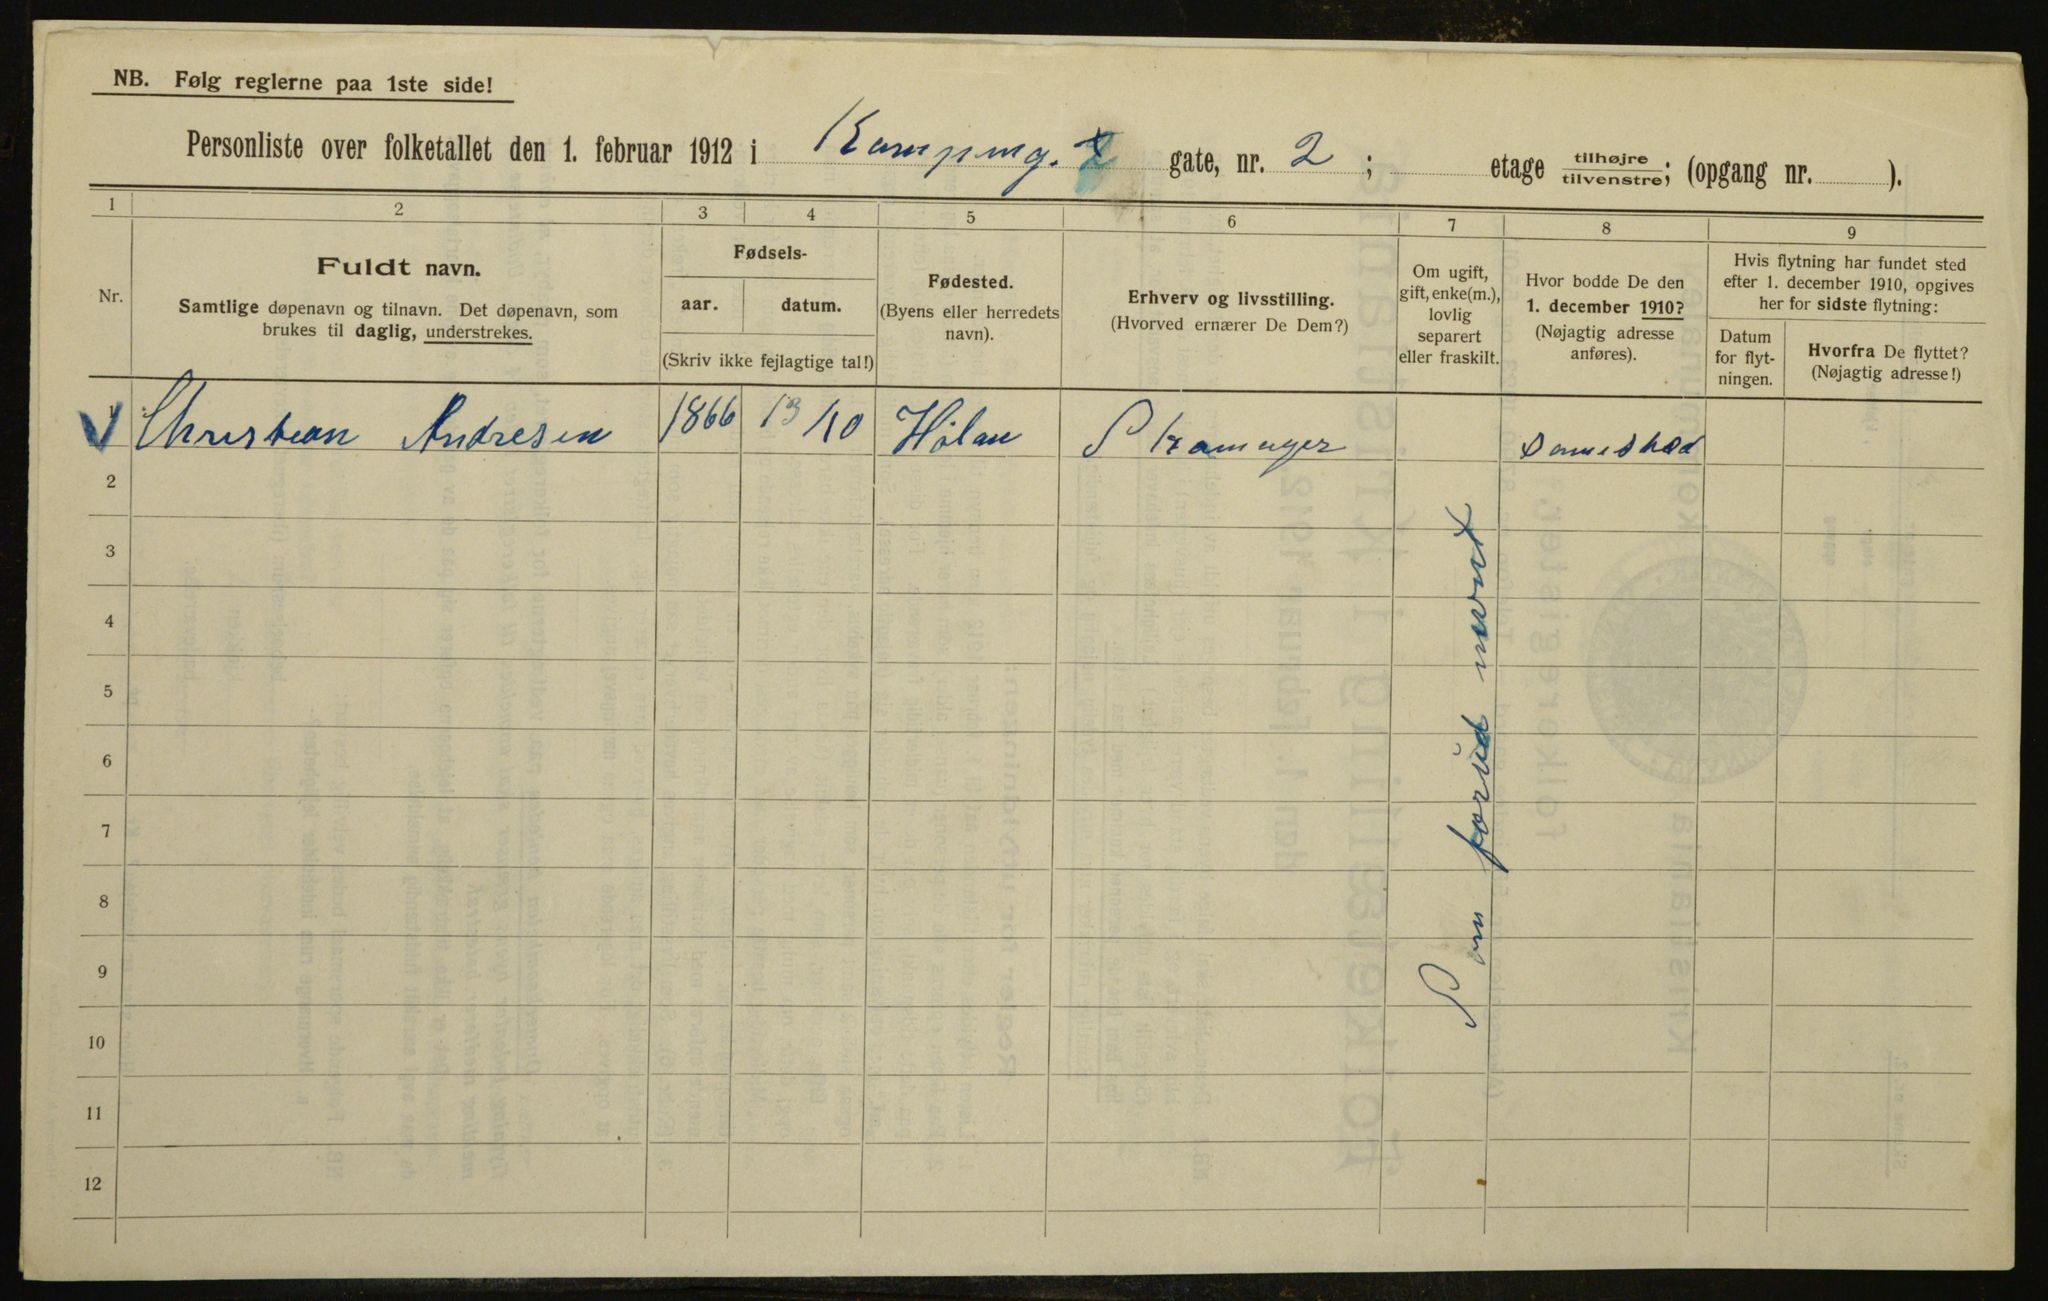 NB. Følg reglerne paa 1ste side!
Personliste over folketallet den 1. februar 1912 i Kampeng. 2 gate, nr. 2 ; etage tilhøjre tilvenstre; (opgang nr. ).
1 2 3 4 5 6 7 8 9
Nr.
Fuldt navn.
Samtlige døpenavn og tilnavn. Det døpenavn, som
brukes til daglig, understrekes.
Fødsels-
aar. datum.
(Skriv ikke fejlagtige tal!)
Fødested.
(Byens eller herredets
navn).
Erhverv og livsstilling.
(Hvorved ernærer De Dem?)
Om ugift,
gift, enke(m.),
lovlig
separert
eller fraskilt.
Hvor bodde De den
1. december 1910?
(Nøjagtig adresse
anføres).
Hvis flytning har fundet sted
efter 1. december 1910, opgives
her for sidste flytning:
Datum
for flyt-
ningen.
Hvorfra De flyttet?
(Nøjagtig adresse!)
1 Christian Andresen 1866 13/10 Hølan
2
3
4
5
6
7
8
9
10
11
12
Som forud nævnt